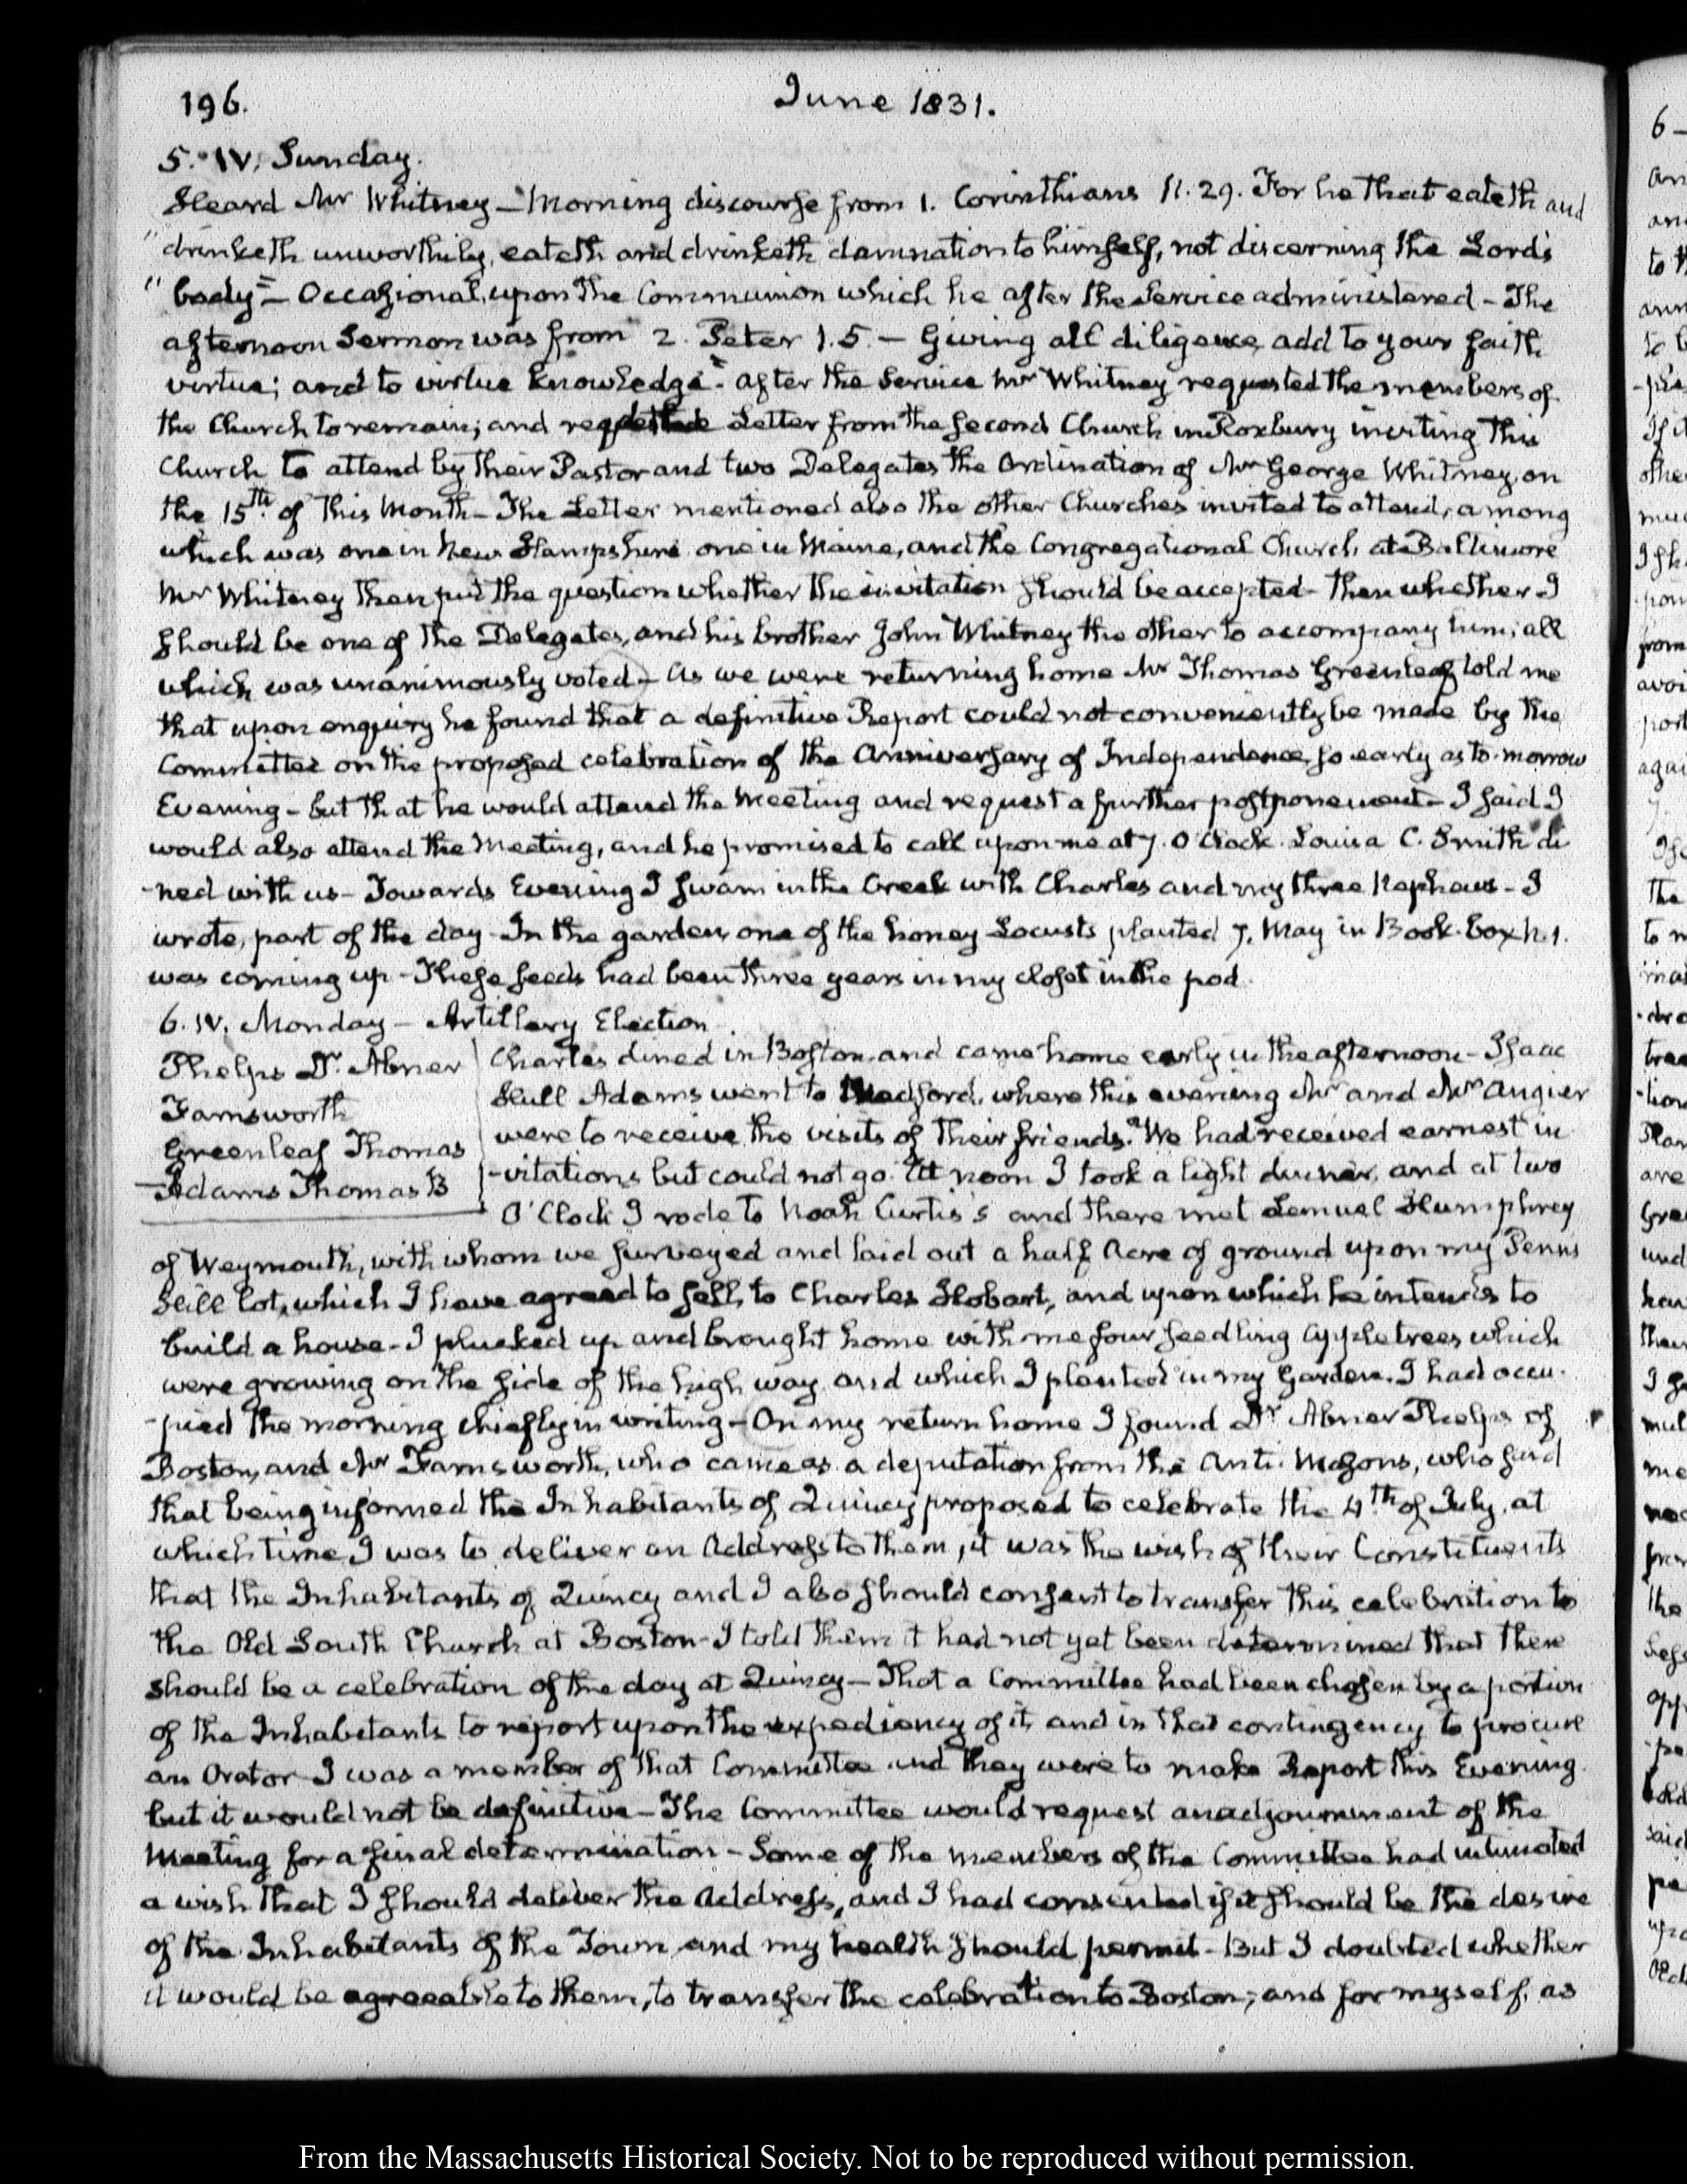 196.
June 1831.
5. IV. Sunday.
Heard Mr Whitney — Morning discourse from 1. Corinthians 11. 29. For he that eateth and
" drinketh unworthily, eateth and drinketh damnation to himself, not discerning the Lord's
" body" — Occasional, upon the Communion which he after the Service administered — The
afternoon Sermon was from 2. Peter 1. 5. — Giving all diligence, add to your faith
virtue; and to virtue knowledge". After the Service Mr Whitney requested the members of
the Church to remain; and Letter from the second Church in Roxbury inviting this
Church to attend by their Pastor and two Delegates the Ordination of Mr George Whitney, on
the 15th. of this Month — The Letter mentioned also the other Churches invited to attend, among
which was one in New Hampshire one in Maine, and the Congregational Church at Baltimore
Mr Whitney then put the question whether the invitation should be accepted — then whether I
should be one of the Delegates, and his brother John Whitney the other to accompany him; all
which was unanimously voted — As we were returning home Mr Thomas Greenleaf told me
that upon enquiry he found that a definitive Report could not conveniently be made by the
Committee on the proposed celebration of the Anniversary of Independence, so early as to-morrow
Evening — but that he would attend the Meeting and request a further postponement — I said I
would also attend the Meeting, and he promised to call upon me at 7. O'Clock. Louisa C. Smith di
-ned with us — Towards Evening I swam in the Creek with Charles and my three Nephews — I
wrote, part of the day — In the garden, one of the honey Locusts planted 7. May in Book-box N. 1.
was coming up — These seeds had been three years in my closet in the pod.
6. IV. Monday — Artillery Election.
Phelps Dr. Abner
Farnsworth
Greenleaf Thomas
Adams Thomas B
Charles dined in Boston and came home early in the afternoon — Isaac
Hull Adams went to Medford, where this evening Mr and Mrs Angier
were to receive the visits of their friends. We had received earnest in
-vitations but could not go. At noon I took a light dinner, and at two
O'Clock I rode to Noah Curtis's and there met Lemuel Humphrey
of Weymouth, with whom we surveyed and laid out a half Acre of ground upon my Penns
Hill lot, which I have agreed to sell, to Charles Hobart, and upon which he intends to
build a house — I plucked up and brought home with me four seedling Apple trees which
were growing on the side of the high way and which I planted in my Garden. I had occu-
-pied the morning chiefly in writing — On my return home I found Dr Abner Phelps of
Boston, and Mr Farnsworth, who came as a deputation from the Anti-Masons, who said
that being informed the Inhabitants of Quincy proposed to celebrate the 4th. of July, at
which time I was to deliver an Address to them, it was the wish of their Constituents
that the Inhabitants of Quincy and I also should consent to transfer this celebration to
the Old South Church at Boston — I told them it had not yet been determined that there
should be a celebration of the day at Quincy — That a Committee had been chosen by a portion
of the Inhabitants to report upon the expediency of it, and in that contingency to procure
an Orator — I was a member of that Committee and they were to make Report this Evening.
but it would not be definitive — The Committee would request an adjournment of the
Meeting for a final determination — Some of the members of the Committee had intimated
a wish that I should deliver the Address, and I had consented if it should be the desire
of the Inhabitants of the Town, and my health should permit — But I doubted whether
it would be agreeable to them, to transfer the celebration to Boston; and for myself, as
From the Massachusetts Historical Society. Not to be reproduced without permission.